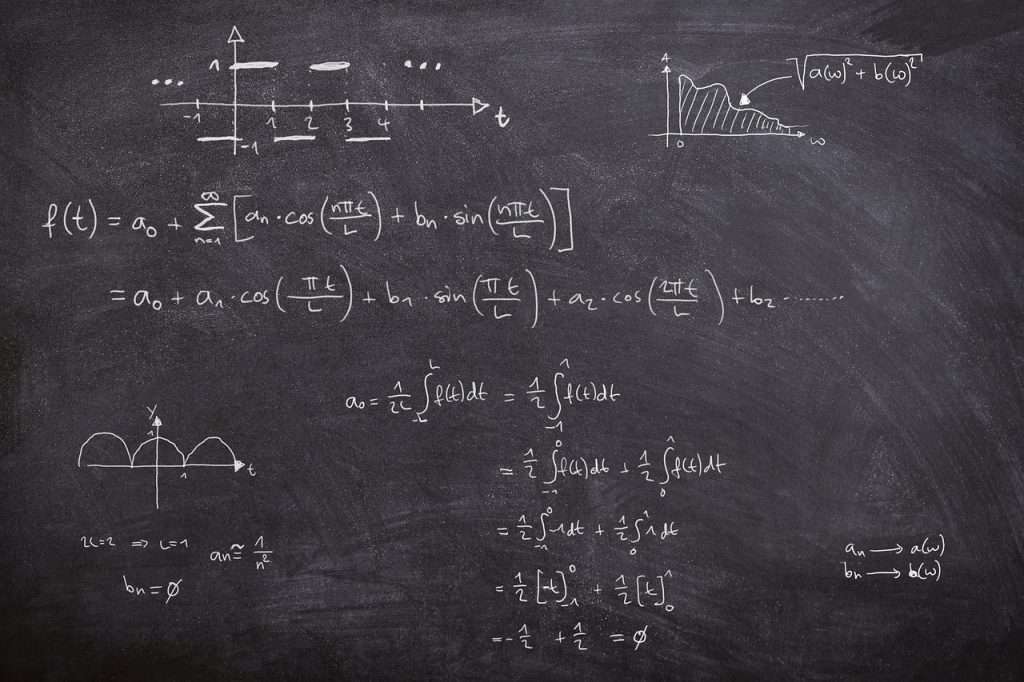 1
...
...
-1 1 2 3 4 t
-1
A
√a(ω)² + b(ω)²
0 ω
f(t) = a₀ + ∑ₙ₌₁^∞ [aₙ·cos(nπt/L) + bₙ·sin(nπt/L)]
= a₀ + a₁·cos(πt/L) + b₁·sin(πt/L) + a₂·cos(2πt/L) + b₂ ........
a₀ = 1/2L ∫₋L^L f(t)dt = 1/2 ∫₋₁^1 f(t)dt
= 1/2 ∫₋₁^0 f(t)dt + 1/2 ∫₀^1 f(t)dt
= 1/2 ∫₋₁^0 -1dt + 1/2 ∫₀^1 1dt
= 1/2 [-t]₋₁^0 + 1/2 [t]₀^1
= -1/2 + 1/2 = ∅
y
1
1 t
2L=2 ⇒ L=1 aₙ ≅ 1/n²
bₙ = ∅
aₙ → a(ω)
bₙ → b(ω)